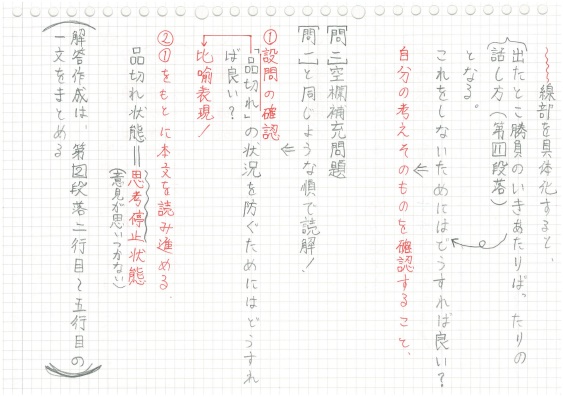 〰〰線部を具体化すると、
出たとこ勝負のいきあたりばったりの
話し方(第四段落)
となる。
これをしないためにはどうすれば良い?
⇐
自分の考えそのものを確認すること、
[問三]空欄補充問題
[問二]と同じような順で読解!
⇐
①設問の確認
「品切れ」の状況を防ぐためにはどうすれ
ば良い?
比喩表現!
②①をもとに本文を読み進める、
品切れ状態=思考停止状態
(意見が思いつかない)
解答作成は、第四段落二行目〜五行目の
一文をまとめる